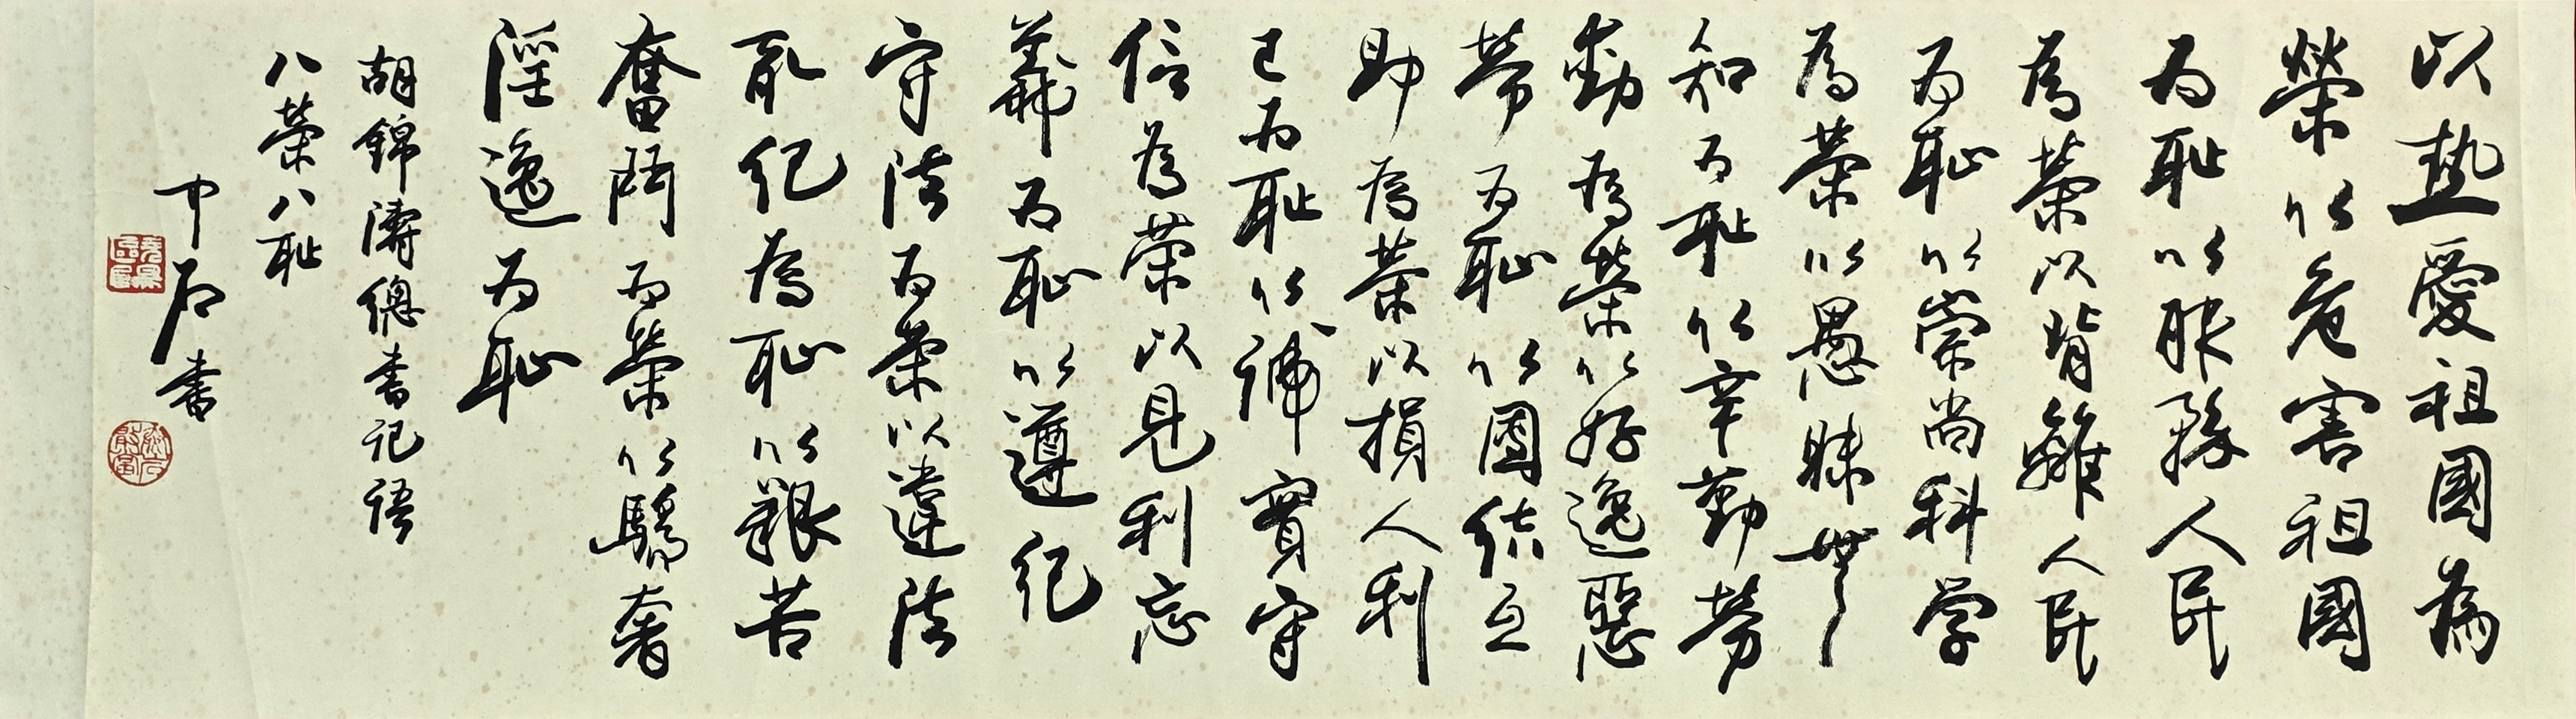 以热愛祖國為
榮以危害祖國
为耻以服務人民
為榮以背離人民
为恥以崇尚科学
為榮以愚昧無
知为耻以辛勤劳
動為榮以好逸惡
勞为恥以團结互
助為荣以損人利
己为耻以誠實守
信為荣以見利忘
義为恥以遵纪
守法为榮以違法
乱纪為恥以艱苦
奮鬥为榮以驕奢
淫逸为恥
胡錦濤總書记语
八榮八耻
中石書